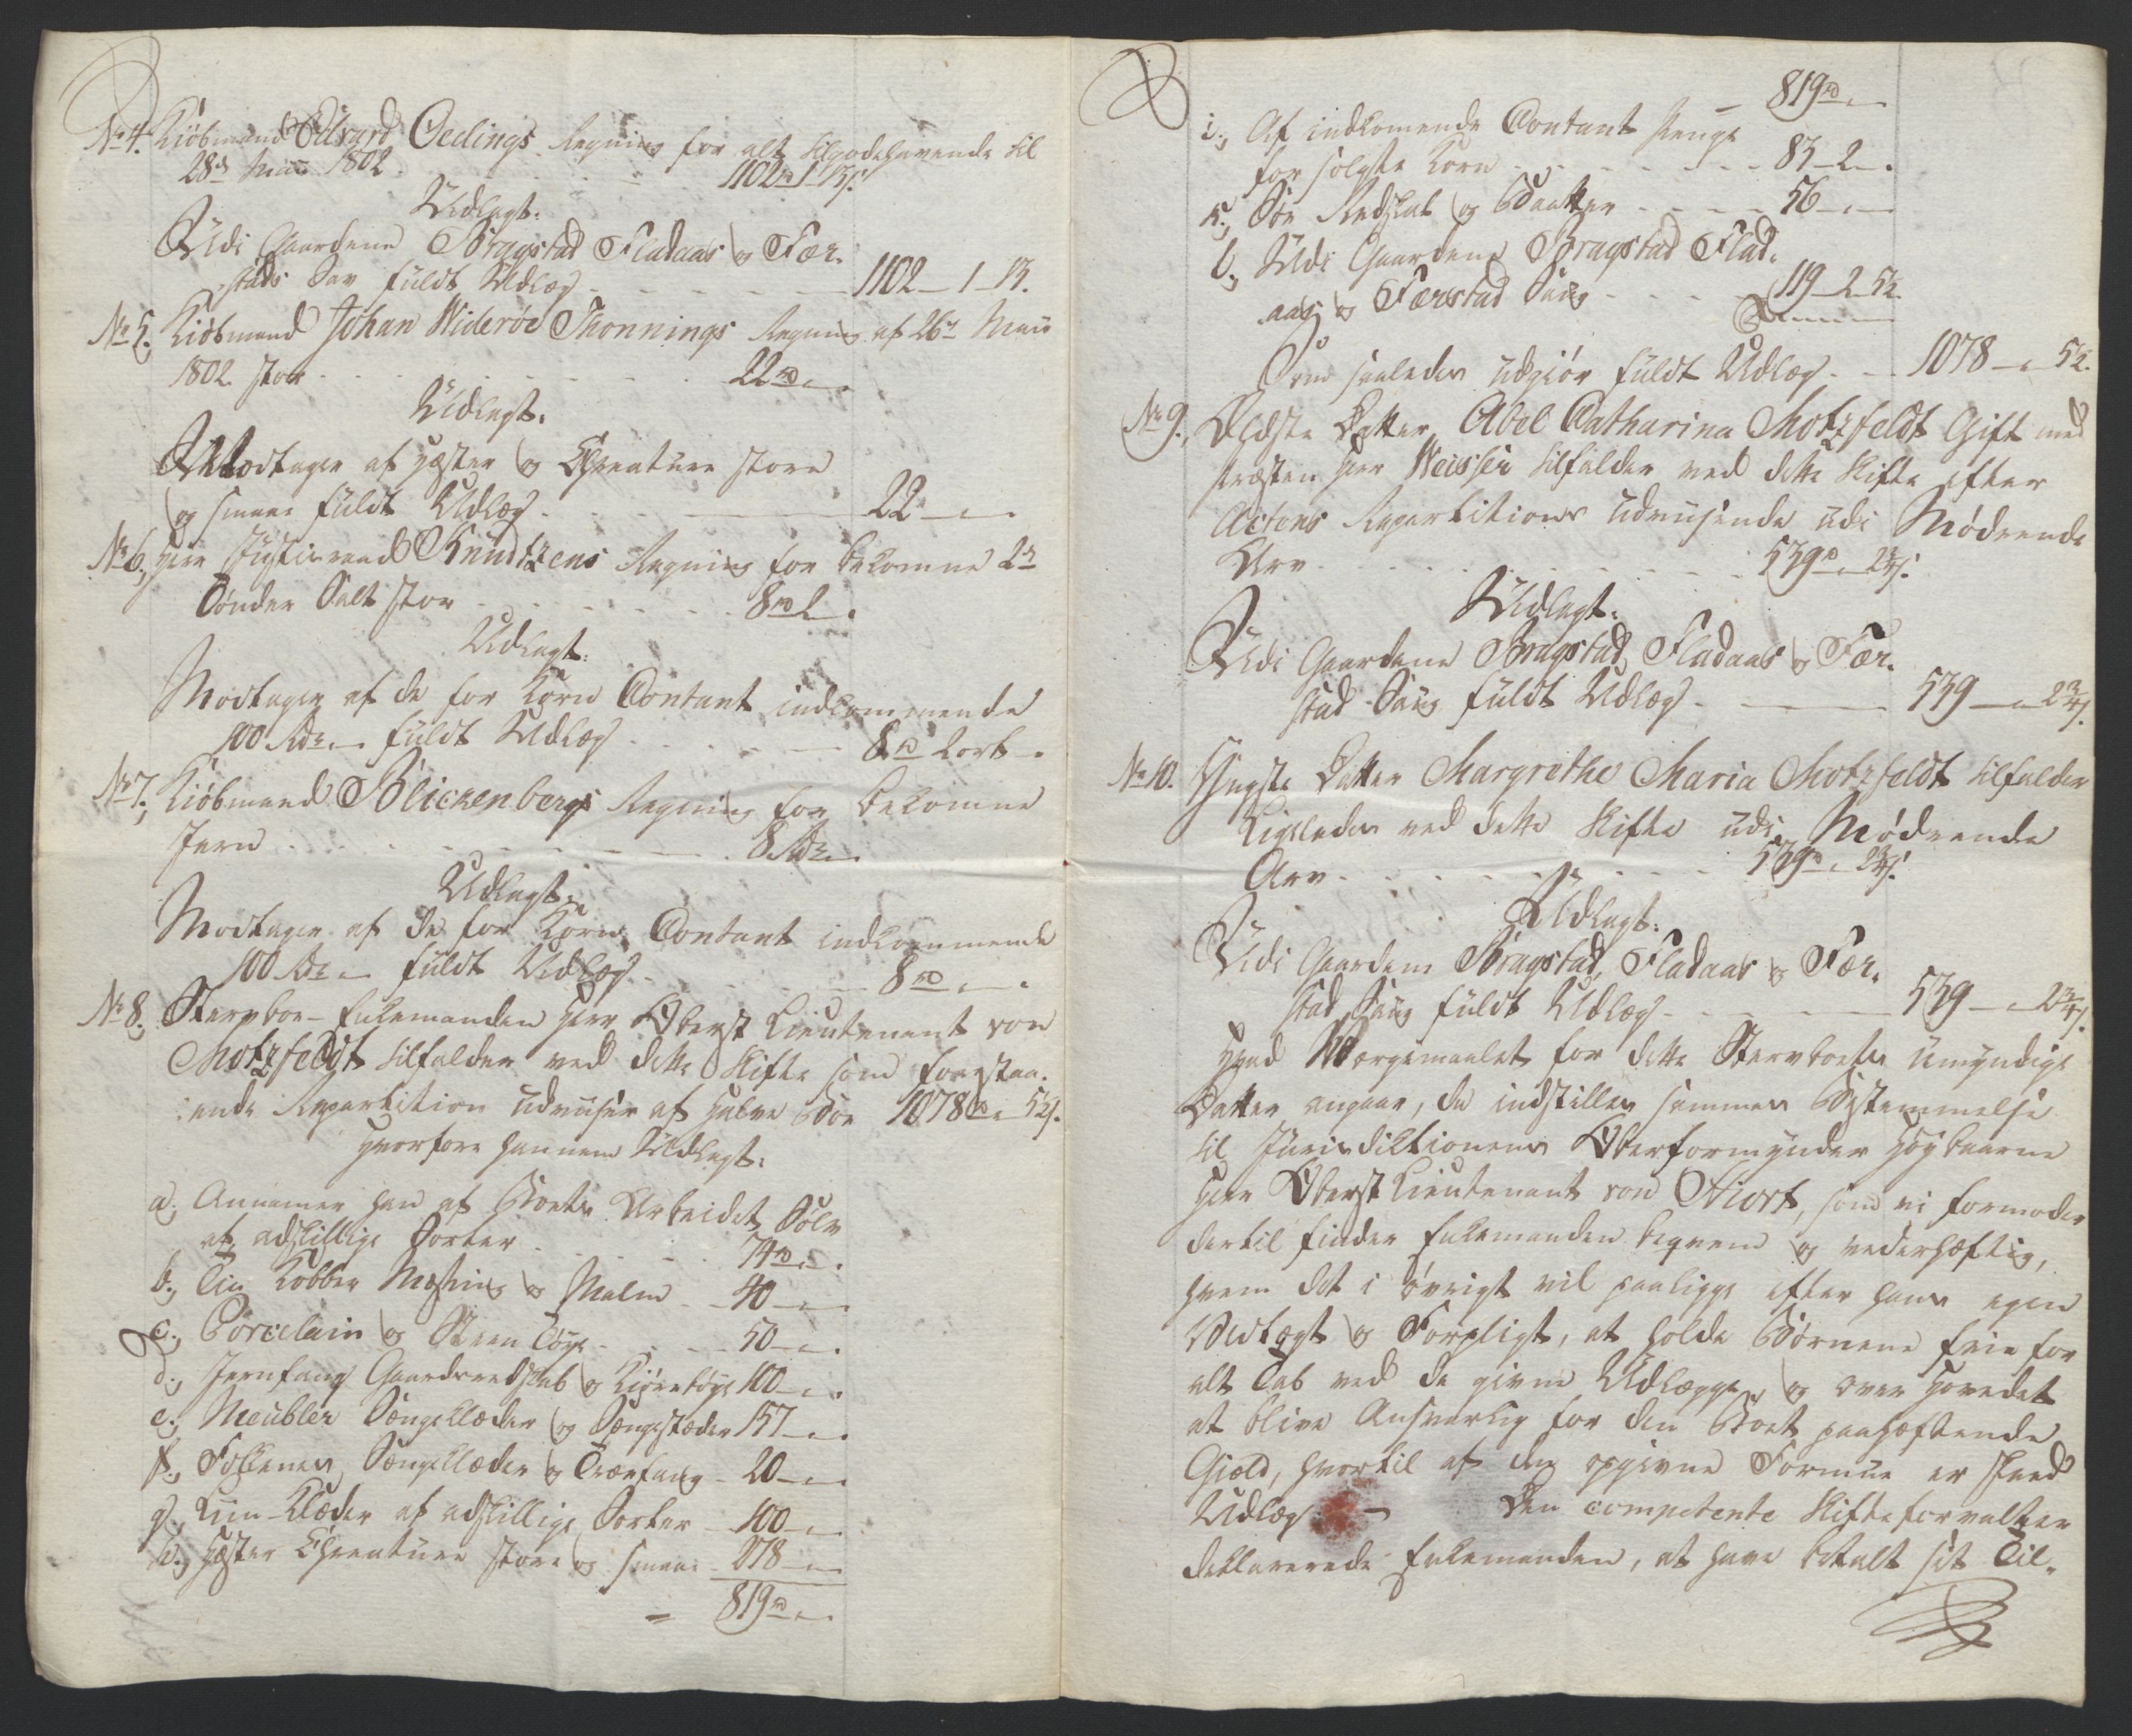 No 4. Kiøbmand Edvard Oedings Regning for alt tilgodehavende til
28de Maii 1802 . . . 1102 rd 1 - 13 s.
Udlagt.
Udi Gaardene Bragstad Fladaas og Fær-
stads Sav fuldt Udlæg . . . 1102 - 1 - 13.
No 5. Kiøbmand Johan Widerøe Thonnings Regning af 26de Maii
1802 stor . . . 22 rd " .
Udlagt.
Modtager af Hæster og Creature store
og smaae fuldt Udlæg . . . 22 - " -
No 6, Herr Justitsraad Knudtzens Regning for bekomne 2de
Tønder Salt stor . . . 8 rd 2 .
Udlagt.
Modtager af de for Korn Contant indkommende
100 Rdr " fuldt Udlæg . . . 8 rd 2 ort - "
No 7, Kiøbmand Blickenbergs Regning for bekomne
Jern . . . 8 Rdr "
Udlagt.
Modtager af de for Korn Contant indkommende
100 Rdr " fuldt Udlæg . . . 8 rd " .
No 8. Stervboe-Enkemanden Herr Oberst Lieutenant von
Motzfeldt tilfalder ved dette Skifte som forestaa-
ende Repartition udviiser af halve Boe 1078 rd " 5½ s.
hvorfore hannem Udlagt.
a, Annamer han af Boets Arbeidet Sølv
af adskillige Sorter . . . 74 rd " .
b, Tin Kobber Messing og Malm . . 40 - "
c, Porcelain og Steen Tøye . . . 50 - " .
d, Jernfang Gaardsredskab og Kiøretøye 100 - " .
e, Meubler Sengeklæder og Sengestæder 157 - " .
f, Folkenes Sengeklæder og Træefang - 20 - "
g, Liin-Klæder af adskillige Sorter - 100 - "
h, Hæster Creature store og smaae - 278 - "
= 819 rd " .
= 819 rd "
i, Af indkomende Contant Penge
for solgte Korn . . . 83 - 2 - .
k, Søe Redskab og Baatter . . . 56 - "
l, Udi Gaardene Bragstad Flad-
aas og Færstad Saug . . . 119 - 2 - 5½
Som saaledes udgiør fuldt Udlæg . . 1078 - " 5½.
No 9. Ældste Datter Abel Catharina Motzfeldt Gift med
Præsten Herr Weisser tilfalder ved dette Skifte efter
Actens Repartitions udviisende udi Mødrende
Arv . . . 539 rd " 2¾ s.
Udlagt.
Udi Gaardene Bragstad, Fladaas og Fær-
stad Saug fuldt Udlæg . . . 539 - " 2¾ s.
No 10. Yngste Datter Margrethe Maria Motzfeldt tilfalder
Ligeledes ved dette Skifte udi Mødrende
Arv . . . 539 rd " 2¾ s.
Udlagt.
Udi Gaardene Bragstad, Fladaas og Fær-
stad Saug fuldt Udlæg . . . 539 - " 2¾ s.
Hvad Wærgemaalet for dette Stervboets umyndige
Datter angaar, da indstilles sammes Bestemmelse
til Jurisdiktionens Oberformynder Høybaarne
Herr Oberst Lieutenant von Hiort, som vi formoder
dertil finder Enkemanden beqvem og vederhæftig,
hvem det i øvrigt vil paaligge efter hans egen
Vedtægt og Forpligt, at holde Børnene frie for
alt Tab ved de givne Udlægge, og over Hovedet
at blive Ansvarlig for den Boet paahæftende
Gjæld, hvortil af den opgivne Formue er skeed
Udlæg - Den competente Skifteforvalter
deklarerede Enkemanden, at have betalt sit Til-